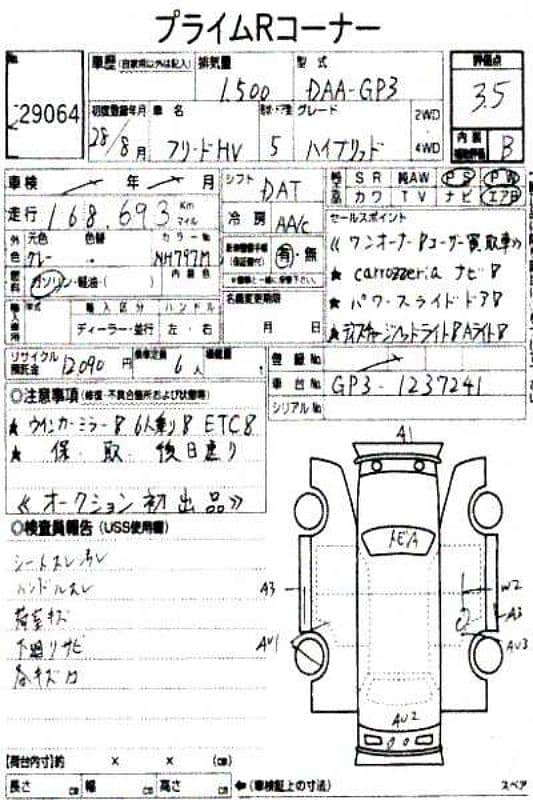 プライムRコーナー
No.
29064
車歴 (自家用以外は記入) 排気量 型式
1,500 DAA-GP3
評価点
3.5
初度登録年月 車名 形状・ドア数 グレード 2WD・4WD
28/8月 フリードHV 5 ハイブリッド
内装 B
車検 年 月
走行 168,693 Km マイル
シフト DAT
冷房 AA/C
SR 純AW PS PW
カワ TV ナビ エアB
外色 元色 色替 カラーNo
グレー NH797M
内装色
燃料 ガソリン・軽油・( )
有・無
セールスポイント
《ワンオーナー!ユーザー買取車》
★ carrozzeria ナビ!
★ パワースライドドア!
★ ディスチャージヘッドライト!Aライト!
輸入区分 ハンドル
ディーラー・並行 左・右
名義変更期限
月 日
リサイクル預託金 12090 円 乗車定員 6人 積載量
登録No
車台No GP3-1237241
シリアルNo
◎注意事項 (修復・不具合箇所および状態等)
★ ウインカーミラー! 6人乗り! ETC!
★ 保・取・後日送り
《オークション初出品》
◎検査員報告 (USS使用欄)
シートスレ汚レ
ハンドルスレ
荷室キズ
下廻リサビ
A1
トビA
A3
W2
A3
AU1
AU3
AU2
【荷台内寸】約 × × (cm)
長さ cm 幅 cm 高さ cm ←(車検証上の寸法) スペア